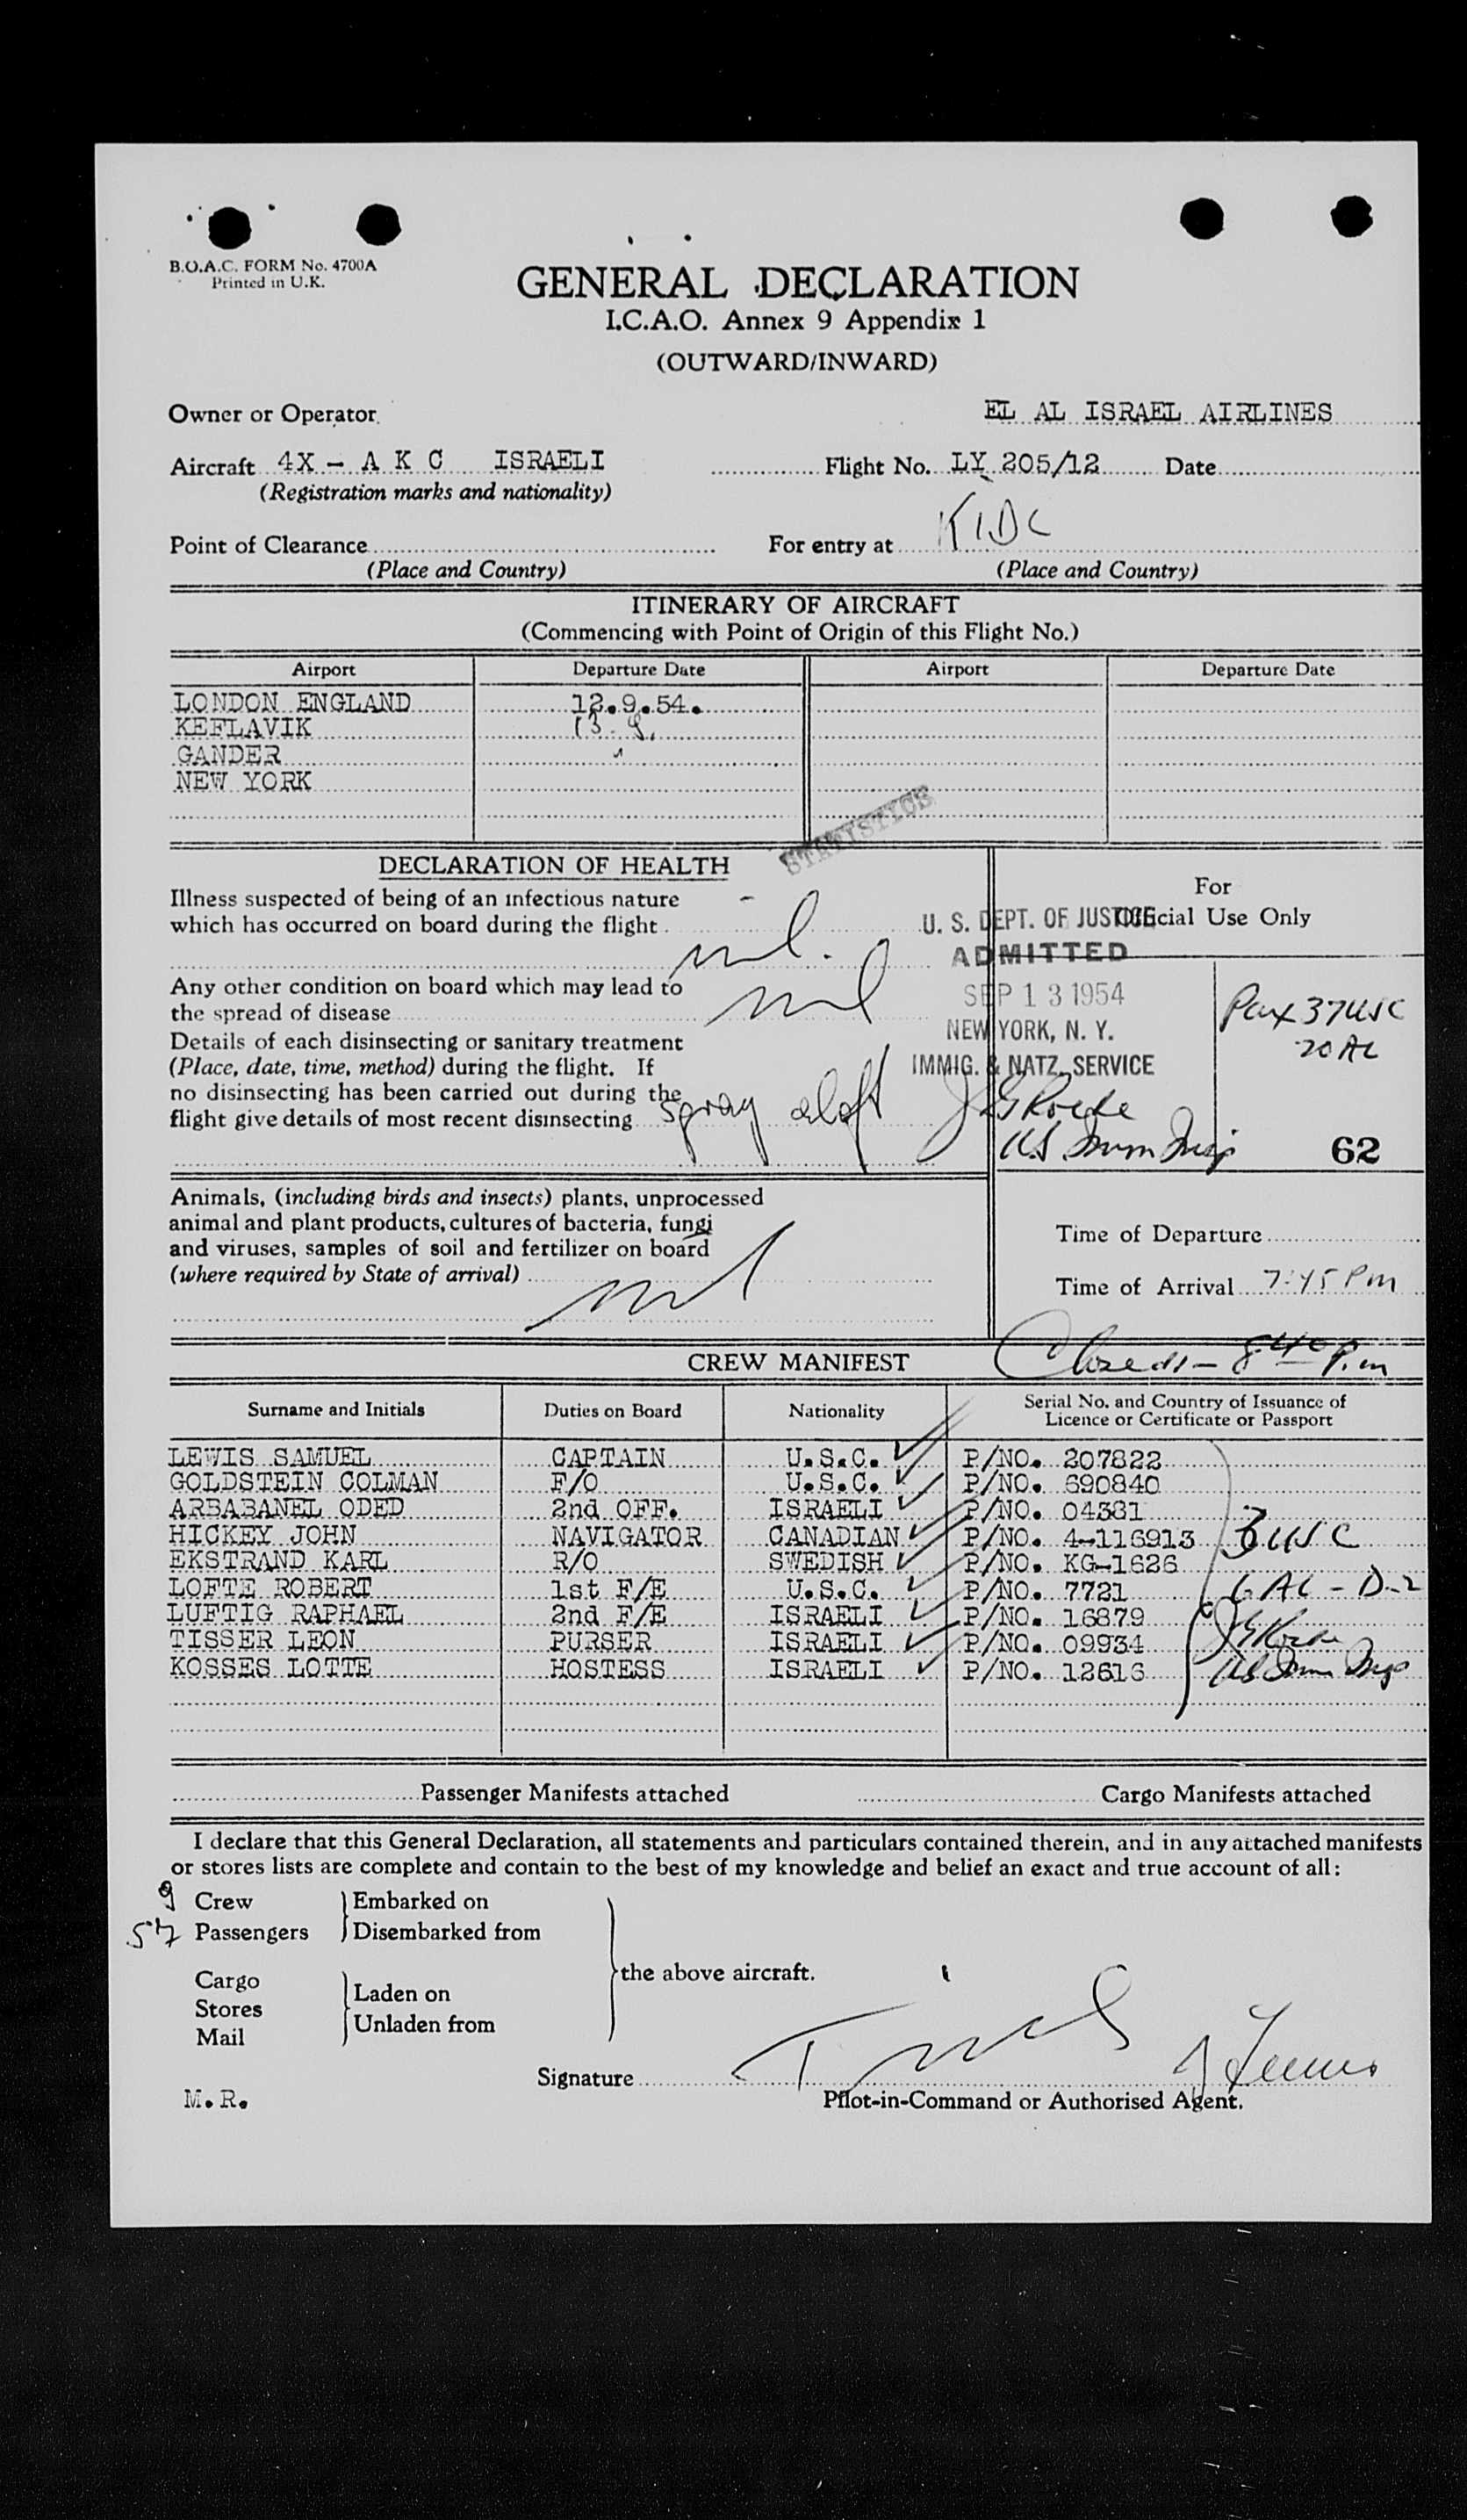 B.O.A.C. FORM No. 4700A
Printed in U.K.
GENERAL DECLARATION
I.C.A.O. Annex 9 Appendix 1
(OUTWARD/INWARD)
Owner or Operator EL AL ISRAEL AIRLINES
Aircraft 4X - A K C ISRAELI Flight No. LY 205/12 Date
(Registration marks and nationality)
Point of Clearance For entry at
(Place and Country) (Place and Country)
ITINERARY OF AIRCRAFT
(Commencing with Point of Origin of this Flight No.)
Airport Departure Date Airport Departure Date
LONDON ENGLAND 12.9.54.
KEFLAVIK 13.9.
GANDER "
NEW YORK
STATISTICS
DECLARATION OF HEALTH
For
Official Use Only
Illness suspected of being of an infectious nature
which has occurred on board during the flight nil.
U. S. DEPT. OF JUSTICE
ADMITTED
SEP 13 1954
NEW YORK, N. Y.
IMMIG. & NATZ. SERVICE
Pax 37 USC
20 AL
US Imm Insp
62
Any other condition on board which may lead to
the spread of disease nil
Details of each disinsecting or sanitary treatment
(Place, date, time, method) during the flight. If
no disinsecting has been carried out during the
flight give details of most recent disinsecting spray aloft
Animals, (including birds and insects) plants, unprocessed
animal and plant products, cultures of bacteria, fungi
and viruses, samples of soil and fertilizer on board
(where required by State of arrival) nil
Time of Departure
Time of Arrival 7:45 PM
CREW MANIFEST
8 40 P.m
Surname and Initials Duties on Board Nationality Serial No. and Country of Issuance of
Licence or Certificate or Passport
LEWIS SAMUEL CAPTAIN U.S.C. P/NO. 207822
GOLDSTEIN COLMAN F/O U.S.C. P/NO. 690840
ARBABANEL ODED 2nd OFF. ISRAELI P/NO. 04381
HICKEY JOHN NAVIGATOR CANADIAN P/NO. 4-116913 3 USC
EKSTRAND KARL R/O SWEDISH P/NO. KG-1626
LOFTE ROBERT 1st F/E U.S.C. P/NO. 7721 6 AL - D-2
LUFTIG RAPHAEL 2nd F/E ISRAELI P/NO. 16879
TISSER LEON PURSER ISRAELI P/NO. 09934
KOSSES LOTTE HOSTESS ISRAELI P/NO. 12613 US Imm Insp
Passenger Manifests attached Cargo Manifests attached
I declare that this General Declaration, all statements and particulars contained therein, and in any attached manifests
or stores lists are complete and contain to the best of my knowledge and belief an exact and true account of all:
9 Crew Embarked on
57 Passengers Disembarked from
the above aircraft.
Cargo
Stores Laden on
Mail Unladen from
Signature
M.R. Pilot-in-Command or Authorised Agent.